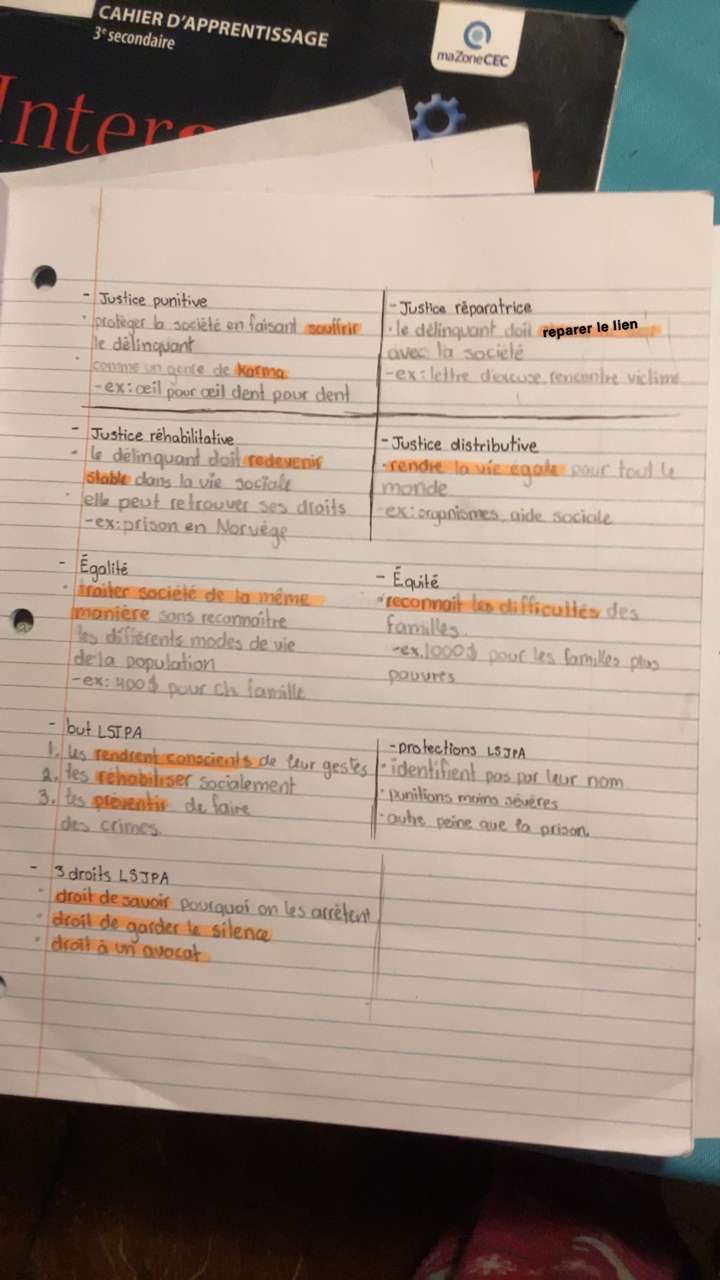 CAHIER D'APPRENTISSAGE
3e secondaire
maZoneCEC
Inter
- Justice punitive
• protéger la société en faisant souffrir
le délinquant
• comme un genre de karma
- ex: œil pour œil dent pour dent
- Justice réparatrice
• le délinquant doit reparer le lien
avec la société
- ex: lettre d'excuse, rencontre victime
- Justice réhabilitative
• le délinquant doit redevenir
stable dans la vie sociale
• elle peut retrouver ses droits
- ex: prison en Norvège
- Justice distributive
• rendre la vie égale pour tout le
monde
ex: organismes, aide sociale
- Égalité
• traiter société de la même
manière sans reconnaître
les différents modes de vie
de la population
- ex: 400$ pour ch famille
- Équité
• reconnait les difficultés des
familles.
- ex. 1000$ pour les familles plus
pauvres
- but LSJPA
1. les rendrent conscients de leur gestes
2. les réhabiliser socialement
3. les préventir de faire
des crimes.
- protections LSJPA
• identifient pas par leur nom
• punitions moins sévères
• autre peine que la prison.
- 3 droits LSJPA
• droit de savoir pourquoi on les arrêtent
• droit de garder le silence
• droit à un avocat